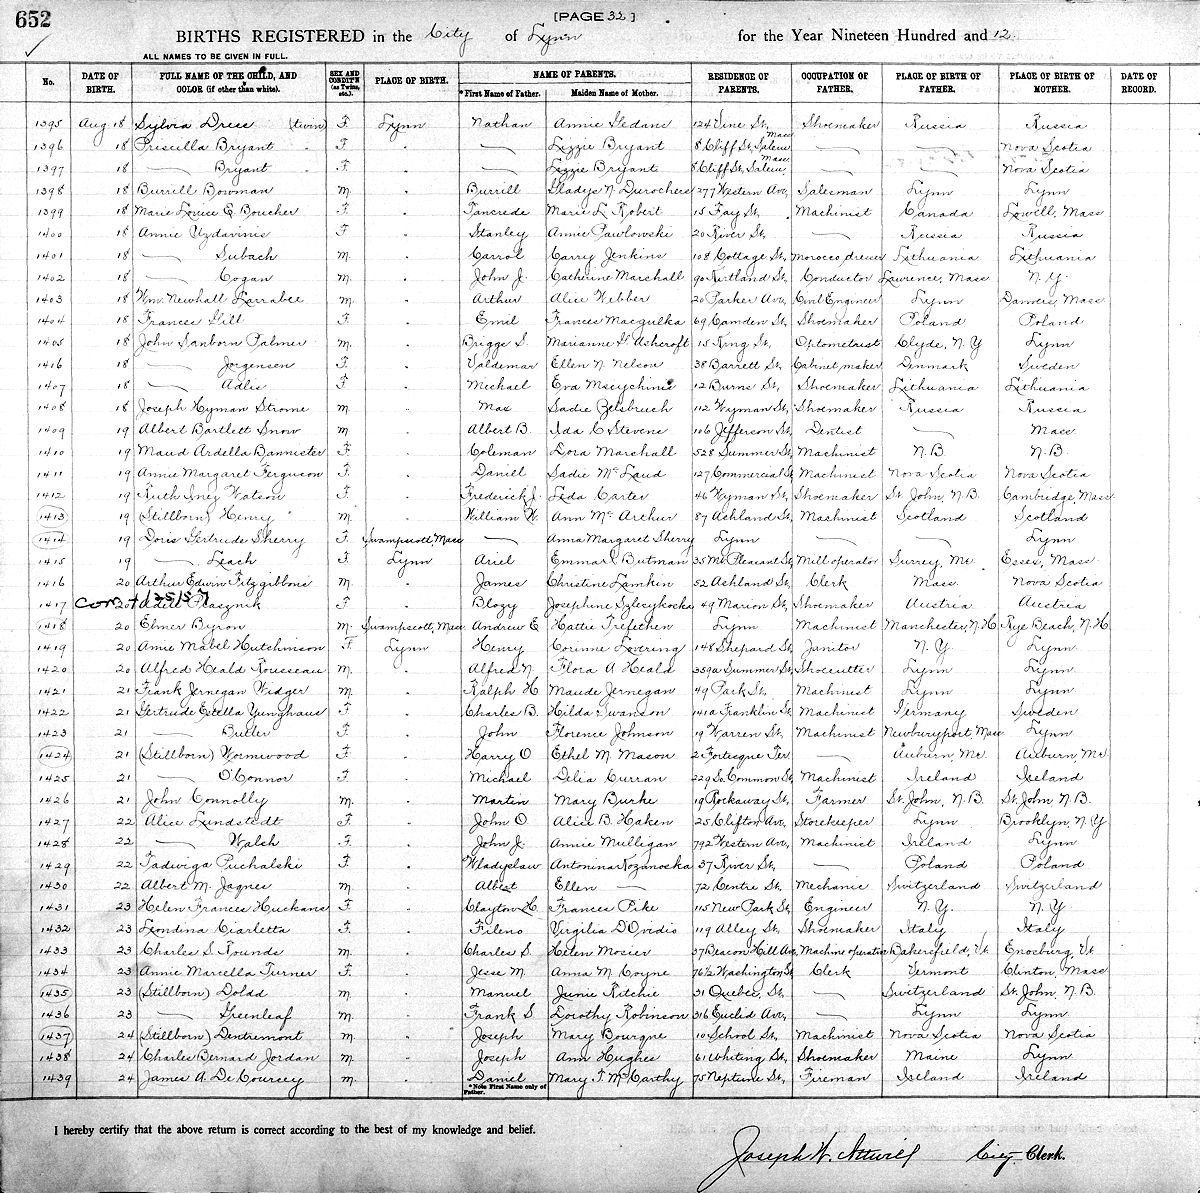 652
[PAGE 32]
BIRTHS REGISTERED in the City of Lynn for the Year Nineteen Hundred and 12.
ALL NAMES TO BE GIVEN IN FULL.
No. DATE OF BIRTH. FULL NAME OF THE CHILD, AND COLOR (if other than white). SEX AND CONDIT'N (as Twins, etc.) PLACE OF BIRTH. NAME OF PARENTS. *First Name of Father. Maiden Name of Mother. RESIDENCE OF PARENTS. OCCUPATION OF FATHER. PLACE OF BIRTH OF FATHER. PLACE OF BIRTH OF MOTHER. DATE OF RECORD.
1395 Aug 18 Sylvia Dress (twin) F. Lynn Nathan Annie Gedans 124 Vine St. Shoemaker Russia Russia
1396 18 Priscilla Bryant F. " — Lizzie Bryant 8 Cliff St, Salem Mass — — Nova Scotia
1397 18 — Bryant F. " — Lizzie Bryant 8 Cliff St, Salem Mass. — — Nova Scotia
1398 18 Burrill Bowman M. " Burrill Gladys N. Durochers 277 Western Ave, Salesman Lynn Lynn
1399 18 Marie Louise E. Boucher F. " Tancrede Marie L. Robert 15 Fay St, Machinist Canada Lowell, Mass
1400 18 Annie Uzdavinis F. " Stanley Annie Pawlowski 20 River St, — Russia Russia
1401 18 — Subach M. " Carrol Carry Jenkins 108 Cottage St, Morocco dresser Lithuania Lithuania
1402 18 — Cogan M. " John J. Catherine Marshall 90 Kirtland St, Conductor Lawrence, Mass N.Y.
1403 18 Wm. Newhall Larrabee M. " Arthur Alice Webber 20 Parker Ave, Civil Engineer Lynn Danvers, Mass
1404 18 Frances Gill F. " Emil Frances Macgulka 69 Camden St, Shoemaker Poland Poland
1405 18 John Sanborn Palmer M. " Briggs S. Marianne H. Ashcroft 15 King St. Optometrist Clyde, N.Y Lynn
1416 18 — Jorgensen F. " Valdemar Ellen N. Nelson 38 Barrett St, Cabinet maker Denmark Sweden
1407 18 — Adlis F. " Michael Eva 12 Burns St, Shoemaker Lithuania Lithuania
1408 18 Joseph Hyman Strome M. " Max Sadie Zelsbruch 112 Wyman St, Shoemaker Russia Russia
1409 19 Albert Bartlett Snow M " Albert B. Ida C Stevens 106 Jefferson St, Dentist — Mass
1410 19 Maud Ardella Bannister F. " Coleman Dora Marshall 528 Summer St Machinist N.B. N.B.
1411 19 Annie Margaret Ferguson F. " Daniel Sadie McLaud 127 Commercial St Machinist Nova Scotia Nova Scotia
1412 19 Ruth Inez Watson F. " Frederick J. Leda Carter 46 Wyman St, Shoemaker St. John, N.B. Cambridge, Mass
1413 19 (Stillborn) Henry M. " William W. Ann McArthur 87 Ashland St, Machinist Scotland Scotland
1414 19 Doris Gertrude Sherry F. Swampscott, Mass — Anna Margaret Sherry Lynn — — Lynn
1415 19 — Leach F. Lynn Ariel Emma L Butman 35 Mt. Pleasant St, Mill operator Surrey, Me. Essex, Mass.
1416 20 Arthur Edwin Fitzgibbons M. " James Christine Lamkin 52 Ashland St, Clerk Mass. Nova Scotia
1417 Corr. 1/25/57 20 Adele Plasznik F. " Blozy Josephine 49 Marion St, Shoemaker Austria Austria
1418 20 Elmer Byron M. Swampscott, Mass. Andrew E Hattie Trefethen Lynn Machinist Manchester, N.H. Rye Beach, N.H.
1419 20 Amie Mabel Hutchinson F. Lynn Henry Corinne Lovering 148 Shepard St, Janitor N.Y. Lynn
1420 20 Alfred Heald Rousseau M. " Alfred N. Flora A Heald 359a Summer St, Shoecutter Lynn Lynn
1421 21 Frank Jernegan Widger M. " Ralph H Maude Jernegan 49 Park St. Machinist Lynn Lynn
1422 21 Gertrude Estella Yunghaus F. " Charles B. Hilda Swanson 141a Franklin St, Machinist Germany Sweden
1423 21 — Butler F. " John Florence Johnson 19 Warren St, Machinist Newburyport Mass Lynn
1424 21 (Stillborn) Wormwood F. " Harry O Ethel M. Mason 2 Fortesque Ter — Auburn, Me. Auburn, Me
1425 21 — O'Connor F. " Michael Delia Curran 229 So. Common St, Machinist Ireland Ireland
1426 21 John Connolly M. " Martin Mary Burke 19 Rockaway St, Farmer St. John, N.B. St. John N.B.
1427 22 Alice Lundstedt F. " John O Alice B. Haken 25 Clifton Ave, Storekeeper Lynn Brooklyn, N.Y.
1428 22 — Walsh F. " John J. Annie Mulligan 792 Western Ave, Machinist Ireland Lynn
1429 22 Jadwiga Puchalski F. " Wladyslaw Antonina Kozanoska 37 River St, — Poland Poland
1430 22 Albert M. Jagnes M. " Albert Ellen — 72 Centre St. Mechanic Switzerland Switzerland
1431 23 Helen Frances Huckans F. " Clayton H. Frances Pike 115 New Park St, Engineer N.Y. N.Y.
1432 23 Leondina Ciarletta F. " Fileno Virgilia D'Ovidio 119 Alley St, Shoemaker Italy Italy
1433 23 Charles S. Rounds M. " Charles S. Helen Mosier 37 Beacon Hill Ave, Machine operative Bakersfield, Vt. Enosburg, Vt.
1434 23 Annie Marcella Turner F. " Jesse M. Anna M. Coyne 76½ Washington St Clerk Vermont Clinton, Mass
1435 23 (Stillborn) Dodd M. " Manuel Junie Ritchie 31 Quebec, St, — Switzerland St. John, N.B.
1436 23 — Greenleaf M. " Frank S. Dorothy Robinson 316 Euclid Ave, — Lynn Lynn
1437 24 (Stillborn) Dentremont M. " Joseph Mary Bourque 10 School St, Machinist Nova Scotia Nova Scotia
1438 24 Charles Bernard Jordan M. " Joseph Ann Hughes 61 Whiting St, Shoemaker Maine Lynn
1439 24 James A. De Coursey M. " Daniel Mary F. McCarthy 75 Neptune St, Fireman Ireland Ireland
*Note First Name only of Father.
I hereby certify that the above return is correct according to the best of my knowledge and belief.
Joseph W. Attwill City Clerk.